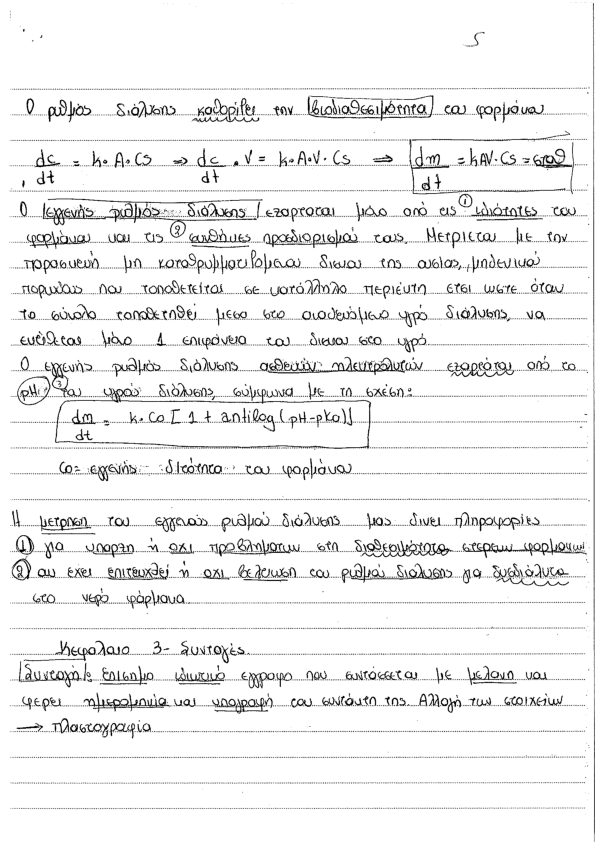 5
Ο ρυθμός διάλυσης καθορίζει την βιοδιαθεσιμότητα του φαρμάκου
dc/dt = k·A·Cs ⇒ dc/dt · V = k·A·V·Cs ⇒ dm/dt = kAV·Cs = σταθ
Ο εγγενής ρυθμός διάλυσης εξαρταται μόνο από τις ① ιδιότητες του
φαρμάκου και τις ② συνθήκες προσδιορισμού τους. Μετριεται με την
παρασκευή μη καταθρυμματιζόμενου δισκου της ουσίας, μηδενικού
πορώδους που τοποθετείται σε κατάλληλο περιέκτη ετσι ωστε όταν
το σύνολο τοποθετηθεί μεσα στο αναδευόμενο υγρό διάλυσης, να
εκτίθεται μόνο 1 επιφάνεια του δισκου στο υγρό.
Ο εγγενής ρυθμός διάλυσης ασθενών ηλεκτρολυτών εξαρτάται από το
pH ③ του υγρού διάλυσης, σύμφωνα με τη σχέση:
dm/dt = k·Co [1 + antilog(pH-pKa)]
Co = εγγενής διτότητα του φαρμάκου
Η μετρηση του εγγενούς ρυθμού διάλυσης μας δινει πληροφορίες
① για υπαρξη ή οχι προβλημάτων στη διαθεσιμότητα στερεων φαρμακων
② αν έχει επιτευχθεί ή οχι βελτιωση του ρυθμού διάλυσης για δυσδιάλυτα
στο νερό φάρμακα.
Κεφαλαιο 3- Συνταγές.
Συνταγή: Επισημο ιδιωτικό εγγραφο που συντάσσεται με μελανη και
φερει ημερομηνία και υπογραφή του συντάκτη της. Αλλαγή των στοιχείων
→ πλαστογραφία